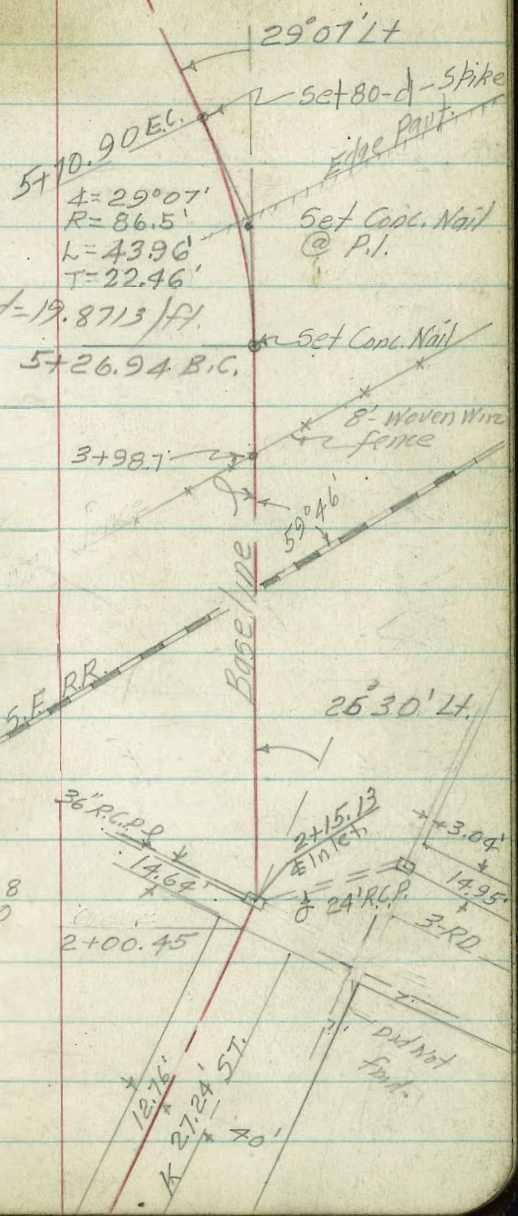 29°07' Lt
Set 80-d-Spike
5+70.90 E.C.
Edge Pavt.
Δ=29°07'
R=86.5'
L=43.96'
T=22.46'
Set Conc. Nail
@ P.I.
d=19.8713'/ft.
Set Conc. Nail
5+26.94 B.C.
8'-Woven Wire
fence
3+98.7
59°46'
Base line
S.F. R.R.
25°30' Lt.
36" R.C.P.
2+15.13
Inlet
3.04'
14.64'
24' R.C.P.
14.95'
3-RD
8
0
2+00.45
Did Not
find.
12.76'
K ST.
27.24'
40'